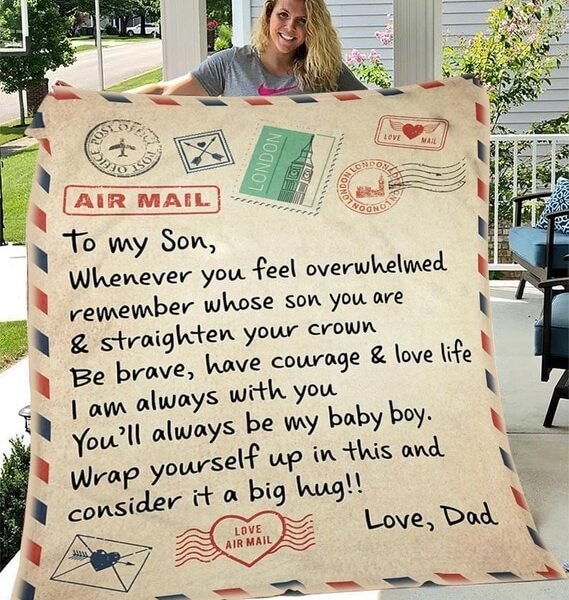 POST OFFICE POST OFFICE
LONDON
LOVE MAIL
LONDON LONDON LONDON
AIR MAIL
To my Son,
Whenever you feel overwhelmed
remember whose son you are
& straighten your crown
Be brave, have courage & love life
I am always with you
You'll always be my baby boy.
Wrap yourself up in this and
consider it a big hug!!
Love, Dad
LOVE
AIR MAIL